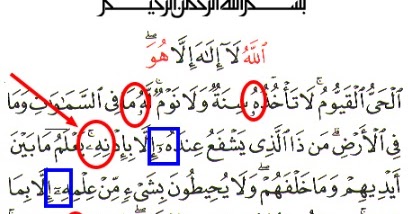 بسم الله الرحمن الرحيم
ٱللَّهُ لَآ إِلَٰهَ إِلَّا هُوَ
ٱلْحَىُّ ٱلْقَيُّومُ ۚ لَا تَأْخُذُهُۥ سِنَةٌ وَلَا نَوْمٌ ۚ لَّهُۥ مَا فِى ٱلسَّمَٰوَٰتِ وَمَا
فِى ٱلْأَرْضِ ۗ مَن ذَا ٱلَّذِى يَشْفَعُ عِندَهُۥٓ إِلَّا بِإِذْنِهِۦ ۚ يَعْلَمُ مَا بَيْنَ
أَيْدِيهِمْ وَمَا خَلْفَهُمْ ۖ وَلَا يُحِيطُونَ بِشَىْءٍ مِّنْ عِلْمِهِۦٓ إِلَّا بِمَا